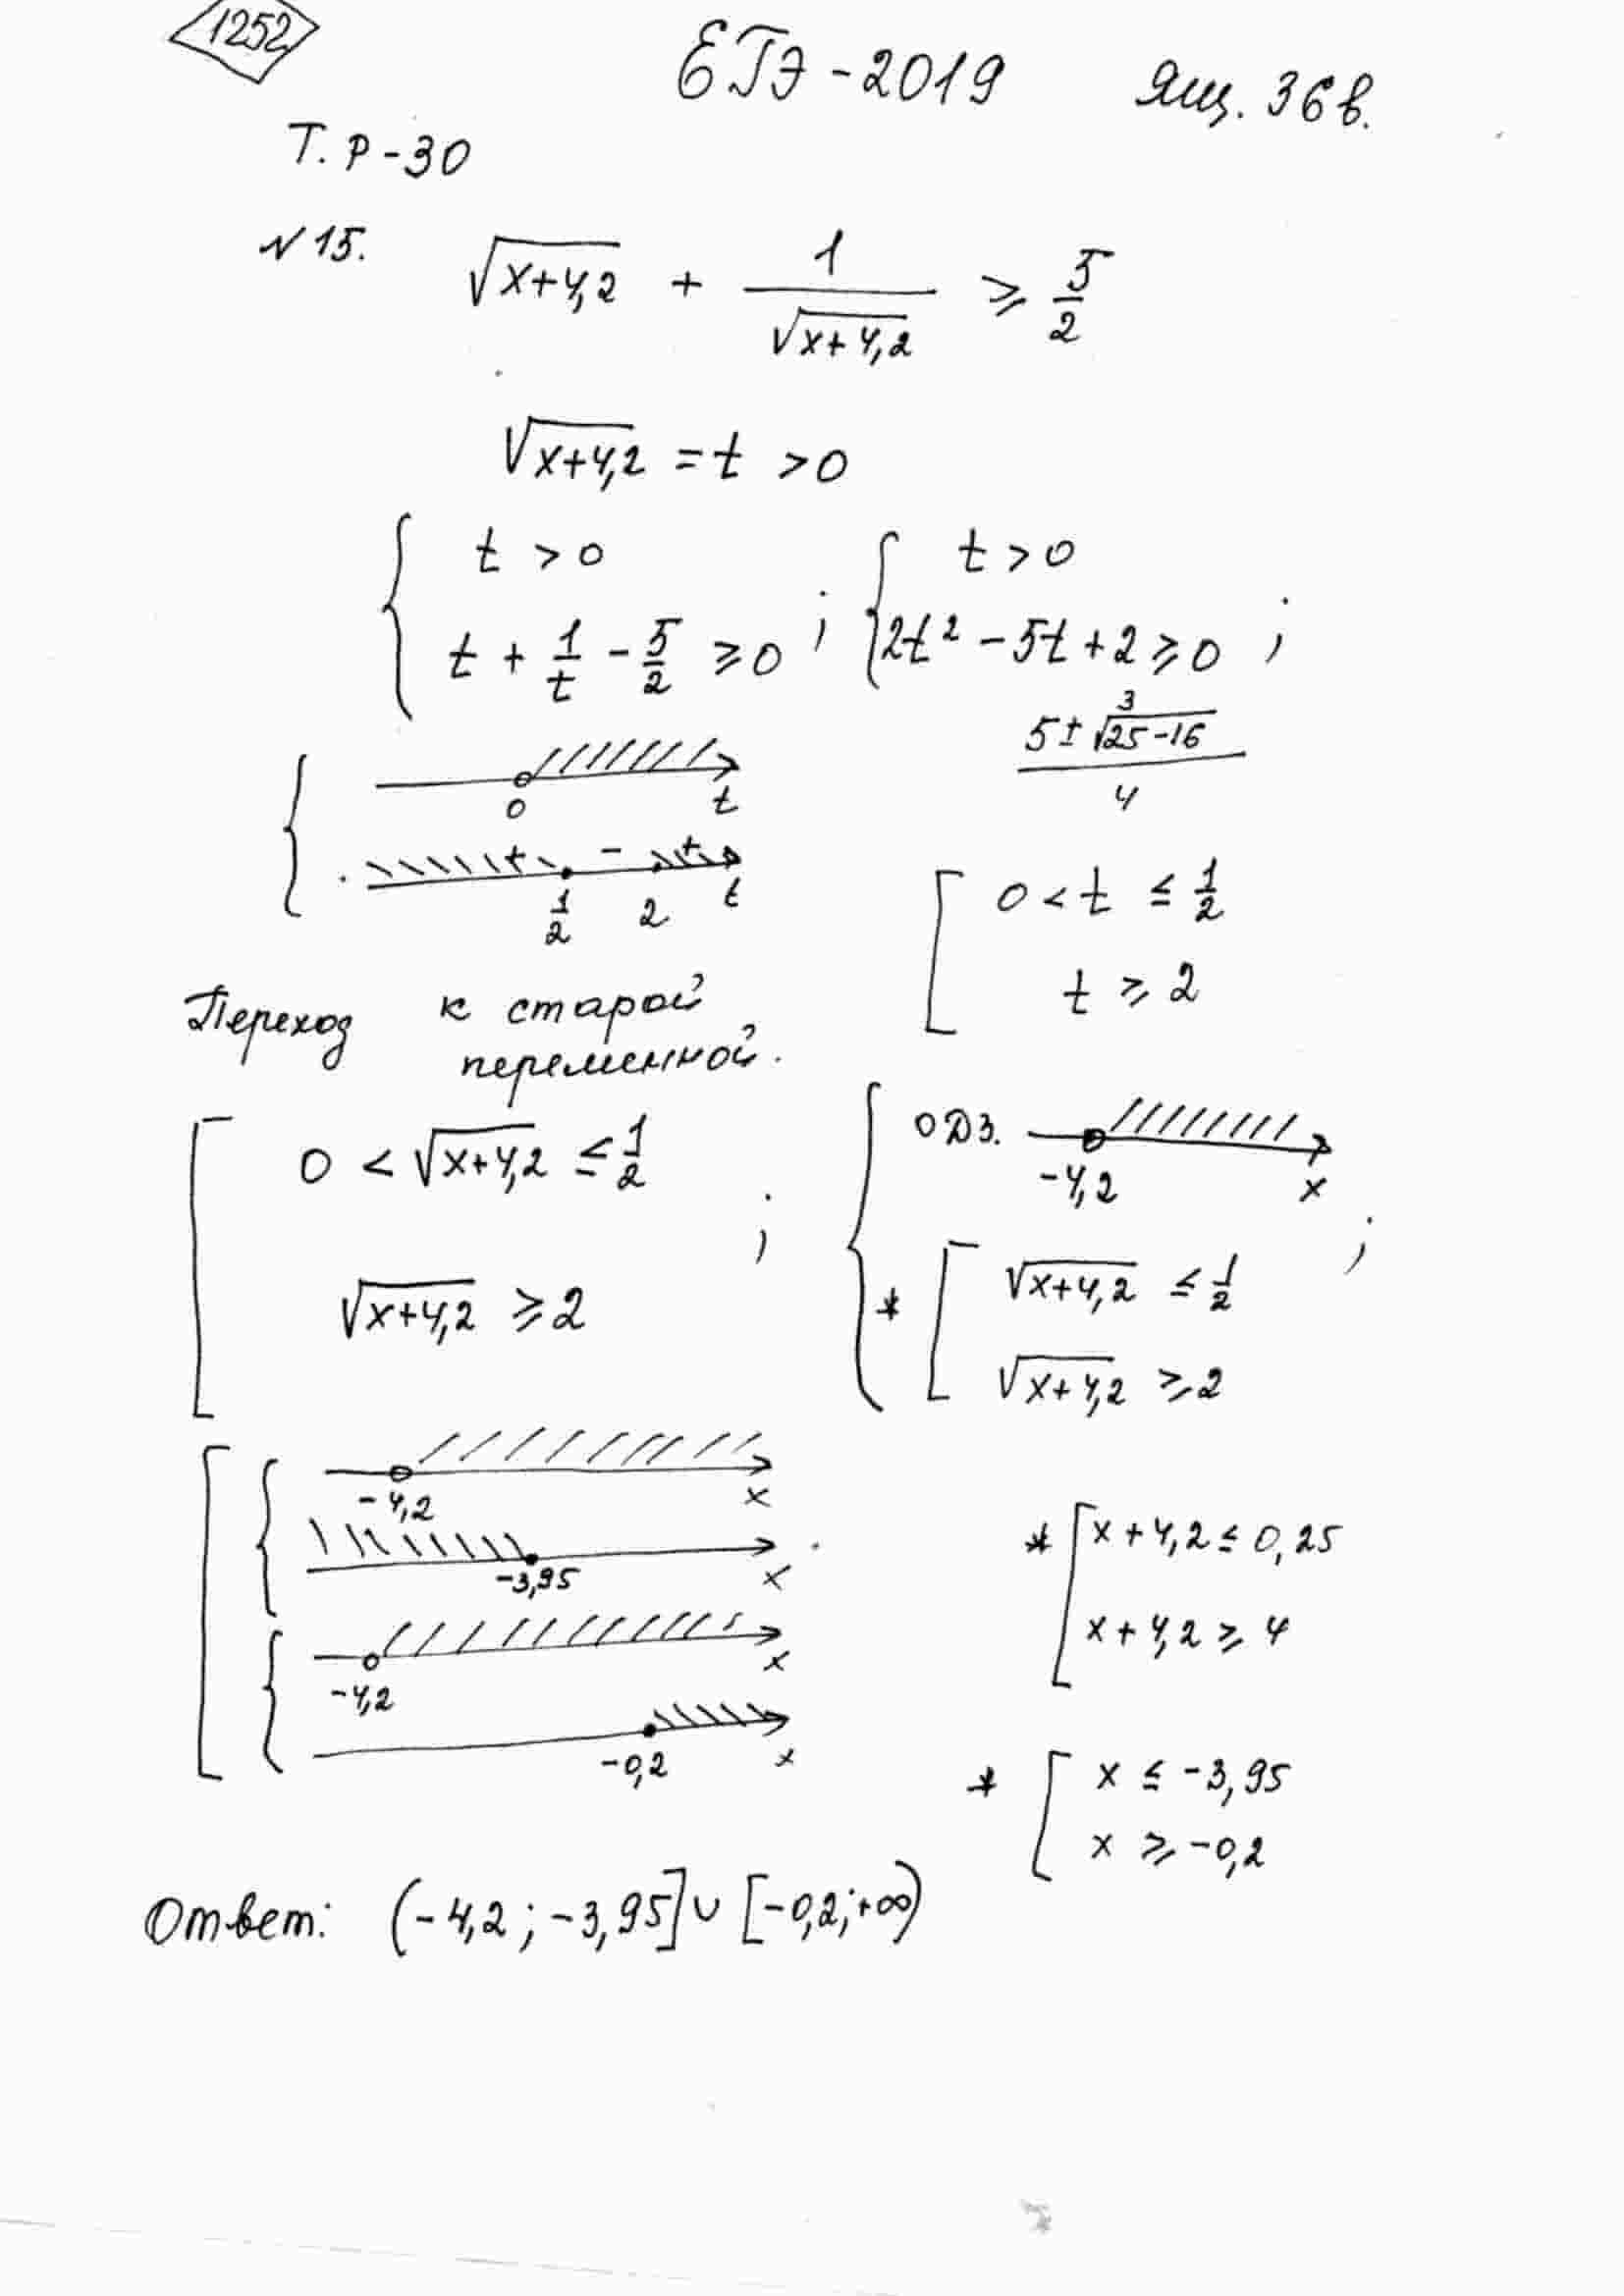 1252
ЕГЭ-2019 Ящ. 36 в.
Т. Р-30
№15. √(x+4,2) + 1/√(x+4,2) ≥ 5/2
√(x+4,2) = t > 0
{ t > 0 ; { t > 0
t + 1/t - 5/2 ≥ 0 ; 2t² - 5t + 2 ≥ 0 ;
(5 ± √(25-16))/4
3
0 t
+ - +
1/2 2 t
[ 0 < t ≤ 1/2
t ≥ 2
Переход к старой
переменной.
[ 0 < √(x+4,2) ≤ 1/2
√(x+4,2) ≥ 2 ;
{ ОДЗ.
-4,2 x
* [ √(x+4,2) ≤ 1/2 ;
√(x+4,2) ≥ 2
-4,2 x
-3,95 x
-4,2 x
-0,2 x
* [ x+4,2 ≤ 0,25
x+4,2 ≥ 4
* [ x ≤ -3,95
x ≥ -0,2
Ответ: (-4,2; -3,95] ∪ [-0,2; +∞)